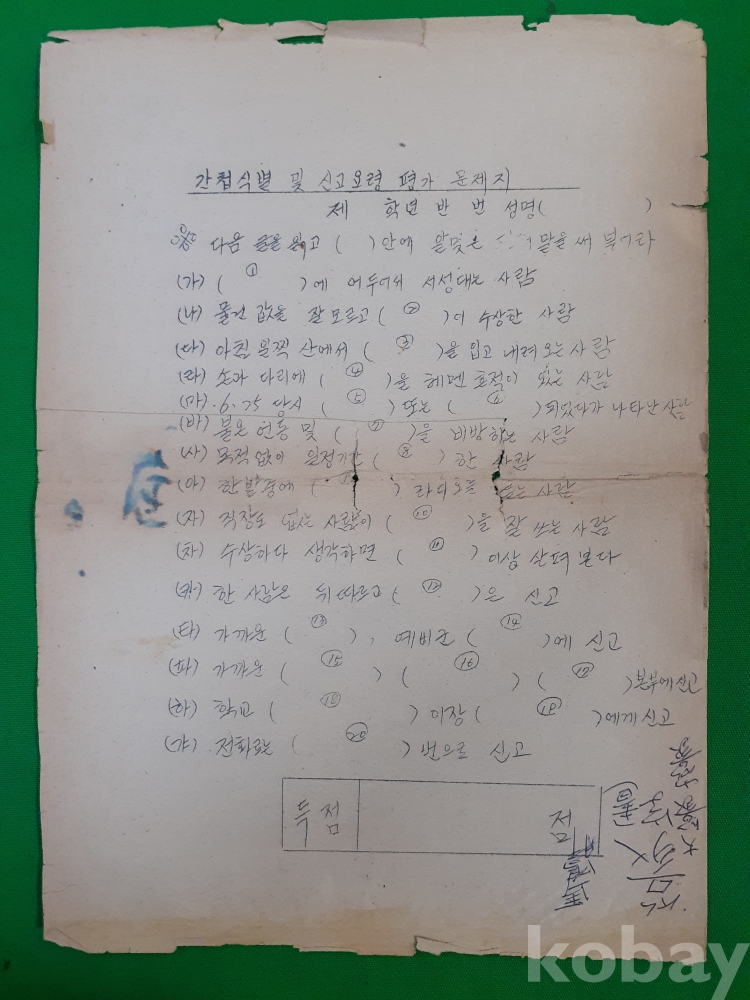 간첩식별 및 신고요령 평가 문제지
제 학년 반 번 성명( )
다음 글을 읽고 ( )안에 알맞은 말을 써 넣어라
(가) ( ① )에 어두어서 서성대는 사람
(나) 물건 값을 잘 모르고 ( ② )이 수상한 사람
(다) 아침 일찍 산에서 ( ③ )을 입고 내려오는 사람
(라) 손과 다리에 ( ④ )을 헤멘 흔적이 있는 사람
(마) 6.25 당시 ( ⑤ ) 또는 ( ⑥ )되었다가 나타난 사람
(바) 불온 언동 및 ( ⑦ )을 비방하는 사람
(사) 목적없이 일정기간 ( ⑧ ) 한 사람
(아) 한밤중에 ( ) 라디오를 듣는 사람
(자) 직장도 없는 사람이 ( ⑩ )을 잘 쓰는 사람
(차) 수상하다 생각하면 ( ⑪ ) 이상 살펴 본다
(카) 한 사람은 뒤따르고 ( ⑫ )은 신고
(타) 가까운 ( ⑬ ), 예비군 ( ⑭ )에 신고
(파) 가까운 ( ⑮ ) ( ⑯ ) ( ⑰ )본부에신고
(하) 학교 ( ⑱ ) 이장 ( ⑲ )에게 신고
(갸) 전화로는 ( ⑳ ) 번으로 신고
득점 점
kobay